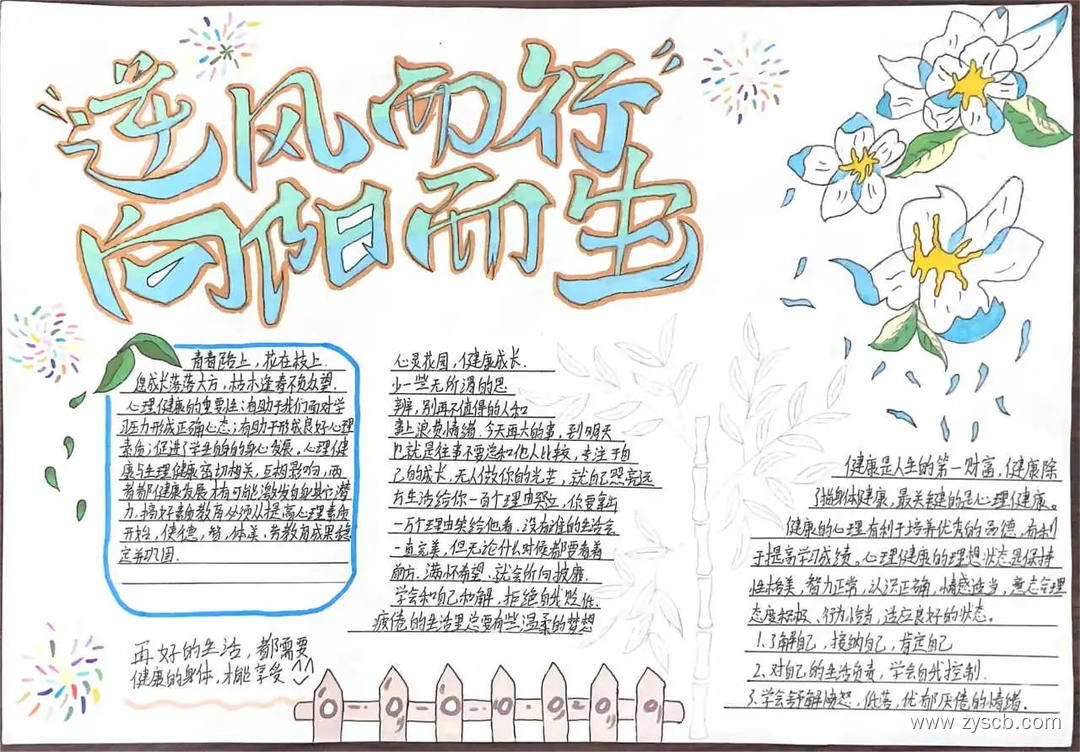 逆风而行
向阳而生
青春陌上，花在枝上.
愿成长落落大方，枯木逢春不负众望.
心理健康的重要性：有助于我们面对学
业压力形成正确心态；有助于形成良好心理
素质；促进了学生自身的身心发展。心理健
康与生理健康密切相关，互相影响，两
者都健康发展才有可能激发自身其它潜
力。搞好素质教育必须从提高心理素质
开始，使德，智，体美、劳教育成果稳
定并巩固.
再好的生活，都需要
健康的身体，才能享受
心灵花园，健康成长.
少一些无所谓的思
辨，别再不值得的人和
事上浪费情绪.今天再大的事，到明天
也就是往事不要总和他人比较，专注于自
己的成长，无人做你的光芒，就自己照亮远
方生活给你一百个理由哭泣，你要拿出
一万个理由笑给他看，没有谁的生活会
一直完美，但无论什么时候都要看着
前方.满怀希望、就会所向披靡.
学会和自己和解，拒绝自我贬低.
疲倦的生活里总要有些温柔的梦想
健康是人生的第一财富，健康除
了指身体健康，最关键的是心理健康。
健康的心理有利于培养优秀的品德，有利
于提高学习成绩。心理健康的理想状态是保持
性格美，智力正常，认识正确，情感适当，意志合理
态度积极、行为恰当，适应良好的状态。
1.了解自己，接纳自己，肯定自己
2.对自己的生活负责，学会自我控制.
3.学会舒解愤怒，低落，忧郁厌倦的情绪.
www.zyscb.com